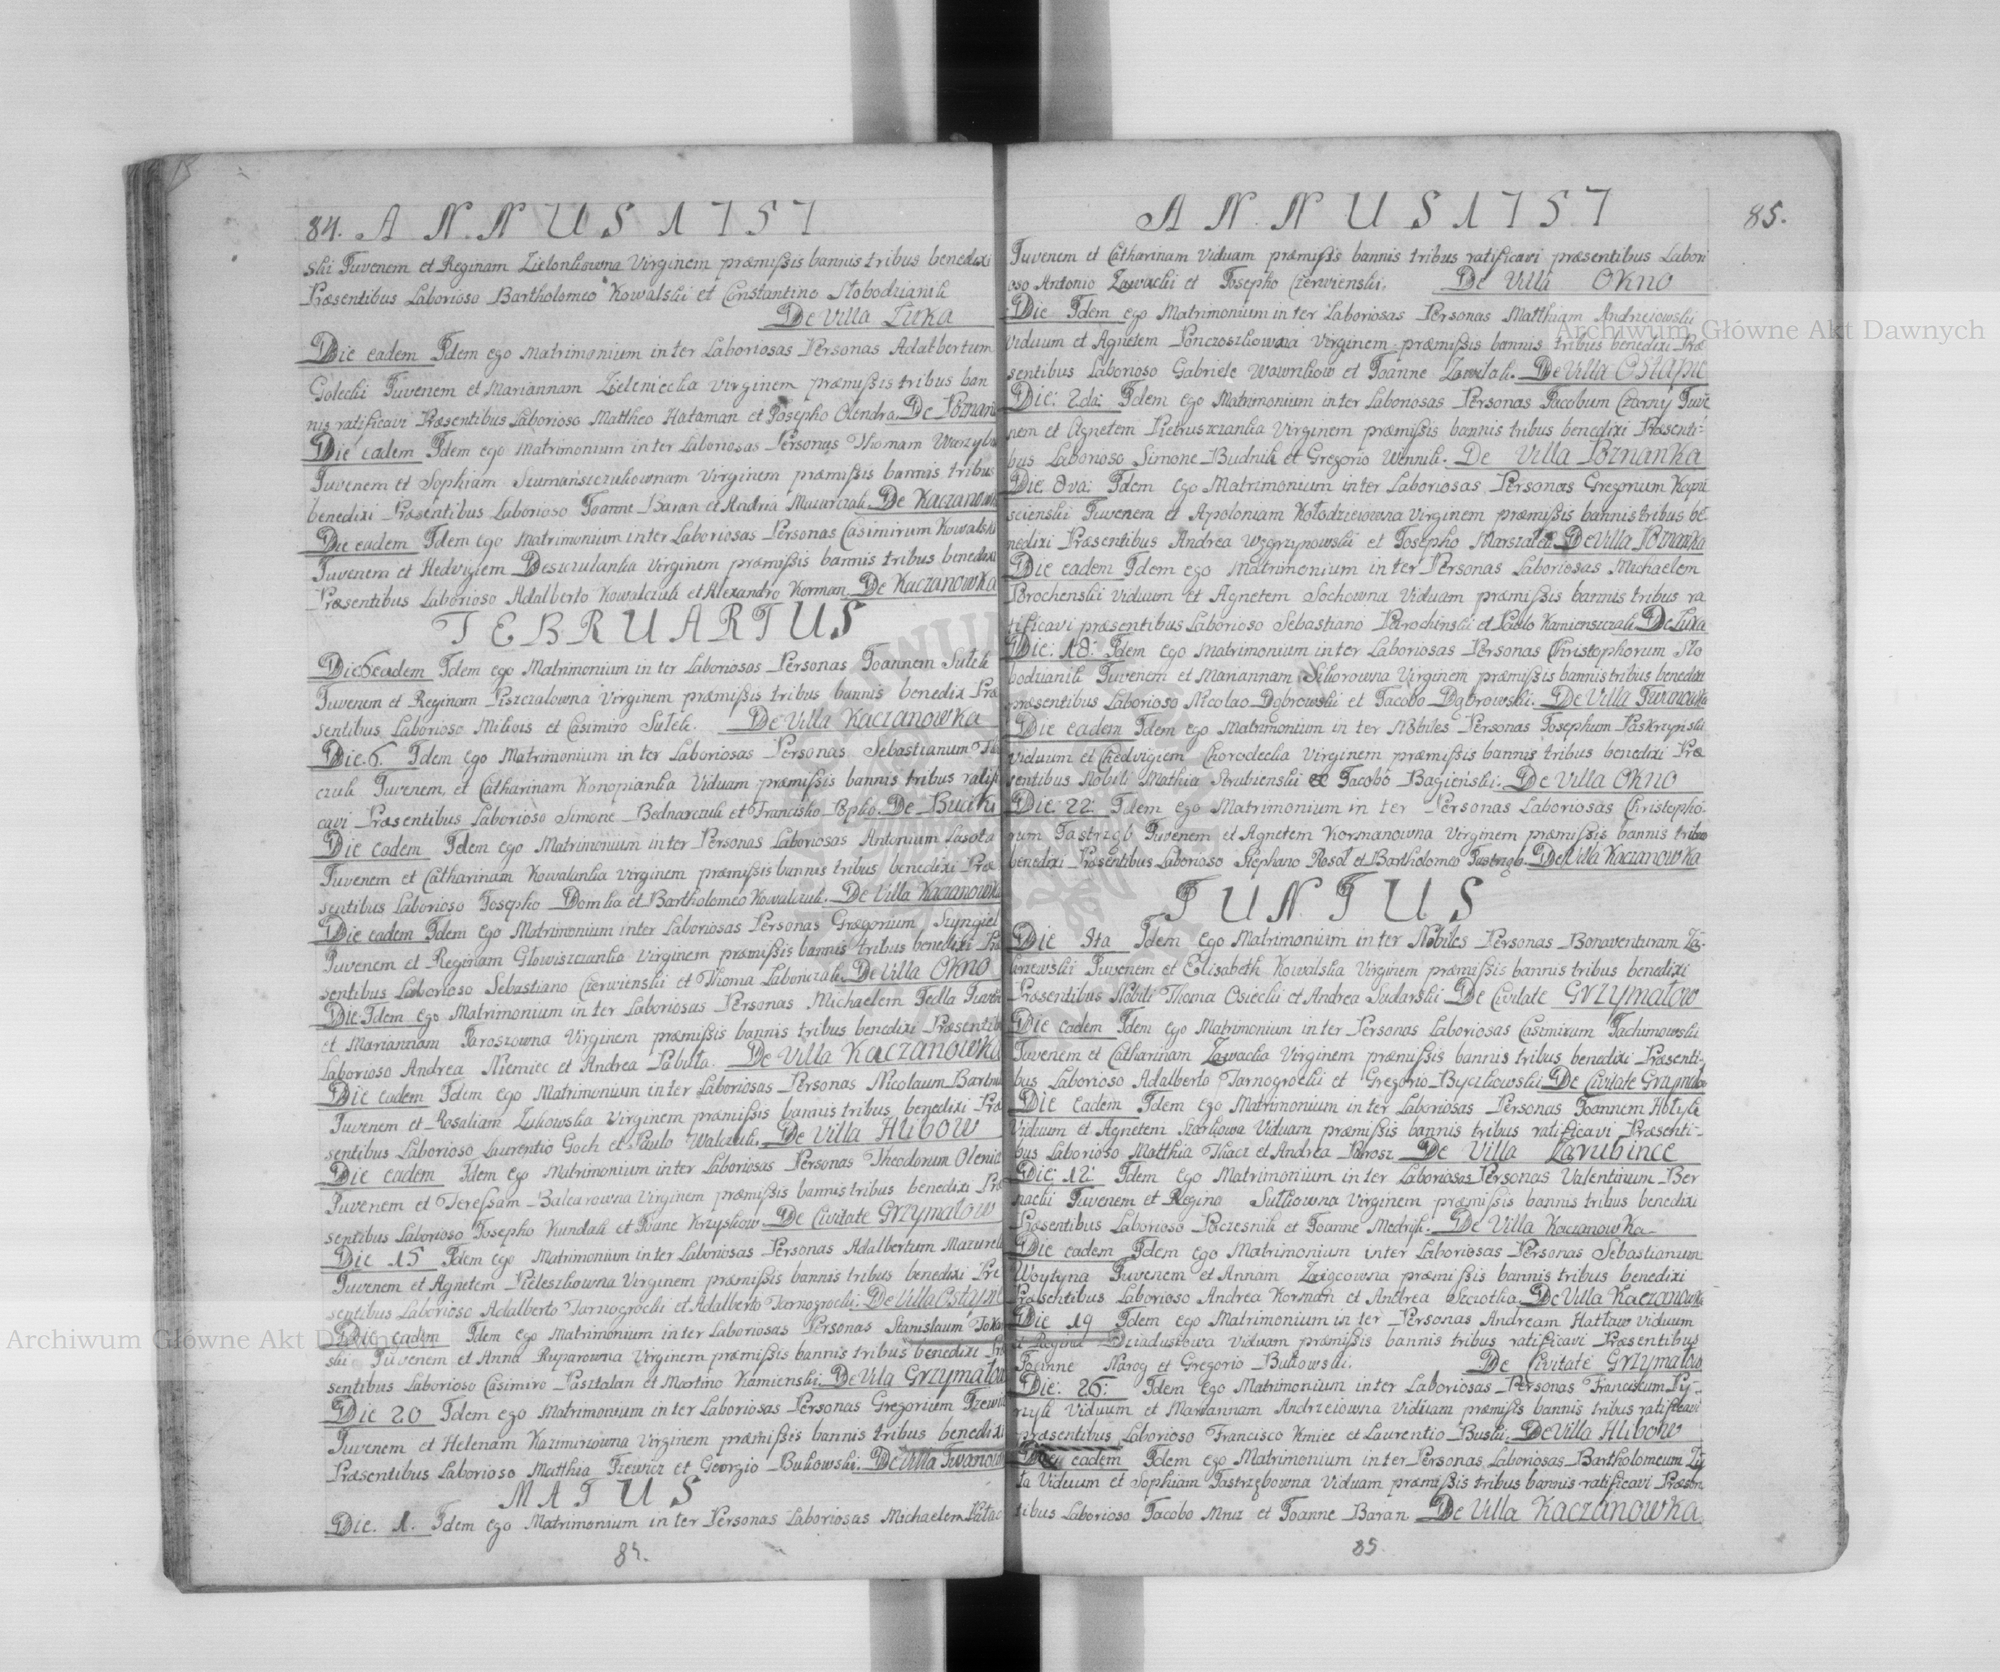 84. ANNUS 1757
ski Juvenem et Reginam Zielonkowna Virginem præmissis bannis tribus benedixi
Præsentibus Laborioso Bartholomeo Kowalski et Constantino Słobodzianik
De Villa Luka
Die eadem Idem ego Matrimonium inter Laboriosas Personas Adalbertum
Golecki Juvenem et Mariannam Zieleniecka Virginem præmissis tribus ban
nis ratificavi Præsentibus Laborioso Mattheo Hataman et Josepho Olendra. De Poznank
Die eadem Idem ego Matrimonium inter Laboriosas Personas Thomam
Juvenem et Sophiam Szumańszczukownam Virginem præmissis bannis tribus
benedixi Præsentibus Laborioso Joanne Baran et Andrea De Kaczanowk
Die eadem Idem ego Matrimonium inter Laboriosas Personas Casimirum Kowalski
Juvenem et Hedvigiem Deszczulanka Virginem præmissis bannis tribus benedixi
Præsentibus Laborioso Adalberto Kowalczuk et Alexandro Korman. De Kaczanowka
FEBRUARIUS
Die 6 eadem Idem ego Matrimonium inter Laboriosas Personas Joannem Sułek
Juvenem et Reginam Piszczalowna Virginem præmissis tribus bannis benedixi Præ
sentibus Laborioso et Casimiro Sułek. De Villa Kaczanowka
Die. 6. Idem ego Matrimonium inter Laboriosas Personas Sebastianum
czuk Juvenem, et Catharinam Konopianka Viduam præmissis bannis tribus ratifi
cavi Præsentibus Laborioso Simone Bednarczuk et Francisko Popko. De Bucki
Die eadem Idem ego Matrimonium inter Personas Laboriosas Antonium Lasota
Juvenem et Catharinam Kowalunka Virginem præmissis bannis tribus benedixi Præ
sentibus Laborioso Josepho Domka et Bartholomeo Kowalczuk. De Villa Kaczanowka
Die eadem Idem ego Matrimonium inter Laboriosas Personas Gregorium Szyngiel
Juvenem et Reginam Głowiszczanka Virginem præmissis bannis tribus benedixi Præ
sentibus Laborioso Sebastiano Czerwienski et Thoma Labonczuk. De Villa OKNO
Die: Idem ego Matrimonium inter Laboriosas Personas Michaelem Fedla Juven
et Mariannam Paroszowna Virginem præmissis bannis tribus benedixi Præsentib
Laborioso Andrea Niemiec et Andrea Pabuła. De Villa Kaczanowka
Die eadem Idem ego Matrimonium inter Laboriosas Personas Nicolaum
Juvenem et Rosaliam Zukowska Virginem præmissis bannis tribus benedixi Præ
sentibus Laborioso Laurentio Goch et Paulo Walczuk. De Villa Hlibow
Die eadem Idem ego Matrimonium inter Laboriosas Personas Theodorum
Juvenem et Teressam Balcarowna Virginem præmissis bannis tribus benedixi Præ
sentibus Laborioso Josepho Kundak et Joane Krzyskow De Civitate Grzymałow
Die 15 Idem ego Matrimonium inter Laboriosas Personas Adalbertum
Juvenem et Agnetem Pieleszkowna Virginem præmissis bannis tribus benedixi Præ
sentibus Laborioso Adalberto Tarnogrocki et Adalberto Tarnogrocki. De Villa
Die eadem Idem ego Matrimonium inter Laboriosas Personas Stanislaum
ski Juvenem et Anna Ruparowna Virginem præmissis bannis tribus benedixi Præ
sentibus Laborioso Casimiro Pasztalan et Martino Kamienski. De Vila Grzymałow
Die 20 Idem ego Matrimonium inter Laboriosas Personas Gregorium
Juvenem et Helenam Kazimirowna Virginem præmissis bannis tribus benedixi
Præsentibus Laborioso Matthia et Georgio Bukowski. De Villa Iwanow
MAIUS
Die. 1. Idem ego Matrimonium inter Personas Laboriosas Michaelem
84.
ANNUS 1757 85.
Juvenem et Catharinam Viduam præmissis bannis tribus ratificavi præsentibus Labori
oso Antonio Zawacki et Josepho Czerwienski. De Villa OKNO
Die Idem ego Matrimonium inter Laboriosas Personas Matthiam Andreiowski
Viduum et Agnetem Ponczoszkowna Virginem præmissis bannis tribus benedixi Præ
sentibus Laborioso Gabriele et Joanne De Villa Ostapie
Die: 2da: Idem ego Matrimonium inter Laboriosas Personas Jacobum Czarny Juve
nem et Agnetem Pietruszczanka Virginem præmissis bannis tribus benedixi Præsenti-
bus Laborioso Simone Budnik et Gregorio De Villa Poznanka
Die. 8va: Idem ego Matrimonium inter Laboriosas Personas Gregorium Kapu
scienski Juvenem et Apoloniam Kołodzieiowna Virginem præmissis bannis tribus be-
nedixi Præsentibus Andrea Węgrzynowski et Josepho Marszałek De Villa Poznanka
Die eadem Idem ego Matrimonium inter Personas Laboriosas Michaelem
Prochenski Viduum et Agnetem Sochowna Viduam præmissis bannis tribus ra
tificavi præsentibus Laborioso Sebastiano Prochinski et Paulo Kamienszczak De Luka
Die: 18: Idem ego Matrimonium inter Laboriosas Personas Christophorum Sło
bodzianik Juvenem et Mariannam Sikorowna Virginem præmissis bannis tribus benedixi
præsentibus Laborioso Nicolao Dąbrowski et Jacobo Dąbrowski. De Villa Iwanowka
Die eadem Idem ego Matrimonium inter Nobiles Personas Josephum Paskrzynski
Viduum et Chedvigiem Chorodecka Virginem præmissis bannis tribus benedixi Præ
sentibus Nobili Mathia Strubienski et Jacobo Bagieński. De Villa OKNO
Die: 22: Idem ego Matrimonium inter Personas Laboriosas Christopho-
rum Jastrząb Juvenem et Agnetem Kormanowna Virginem præmissis bannis tribus
benedixi Præsentibus Laborioso Stephano Rosoł et Bartholomeo Jastrząb. De Villa Kaczanowka
JUNIUS
Die 8ta Idem ego Matrimonium inter Nobiles Personas Bonaventuram Za-
krzewski Juvenem et Elisabeth Kowalska Virginem præmissis bannis tribus benedixi
Præsentibus Nobili Thoma Osiecki et Andrea Sudarski De Civitate Grzymałow
Die eadem Idem ego Matrimonium inter Personas Laboriosas Casimirum Jachimowski
Juvenem et Catharinam Zawacka Virginem præmissis bannis tribus benedixi Præsenti-
bus Laborioso Adalberto Tarnogrocki et Gregorio Byczkowski De Civitate Grzymało
Die eadem Idem ego Matrimonium inter Laboriosas Personas Joannem Hołyk
Viduum et Agnetem Szarkowa Viduam præmissis bannis tribus ratificavi Præsenti-
bus Laborioso Matthia Tkacz et Andrea Parosz De Villa Zarubince
Die: 12: Idem ego Matrimonium inter Laboriosas Personas Valentinum Ber
nacki Juvenem et Regina Sułkowna Virginem præmissis bannis tribus benedixi
Præsentibus Laborioso Pączesnik et Joanne Mędryk. De Villa Kaczanowka
Die eadem Idem ego Matrimonium inter Laboriosas Personas Sebastianum
Woytyna Juvenem et Annam Zaięcowna præmissis bannis tribus benedixi
Præsentibus Laborioso Andrea Korman et Andrea Szczotka. De Villa Kaczanowka
Die 19 Idem ego Matrimonium inter Personas Andream Hatław Viduum
et Regina Dziaduskowa Viduam præmissis bannis tribus ratificavi Præsentibus
Joanne Narog et Gregorio Bukowski. De Civitate Grzymałow
Die: 26: Idem ego Matrimonium inter Laboriosas Personas Franciscum Py-
rzyk Viduum et Mariannam Andrzeiowna Viduam præmissis bannis tribus ratificavi
præsentibus Laborioso Francisco Kmiec et Laurentio Buski. De Villa Hlibow
Die eadem Idem ego Matrimonium inter Personas Laboriosas Bartholomeum Zu
ta Viduum et Sophiam Jastrzębowna Viduam præmissis tribus bannis ratificavi Præsen
tibus Laborioso Jacobo Mruz et Joanne Baran De Villa Kaczanowka
85
Archiwum Główne Akt Dawnych
Archiwum Główne Akt Dawnych